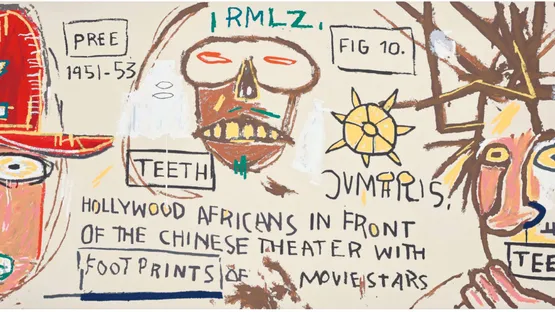 IRMLZ.
PREE
1951-53
FIG 10.
TEETH
HOLLYWOOD AFRICANS IN FRONT
OF THE CHINESE THEATER WITH
FOOTPRINTS OF MOVIE STARS
TEE